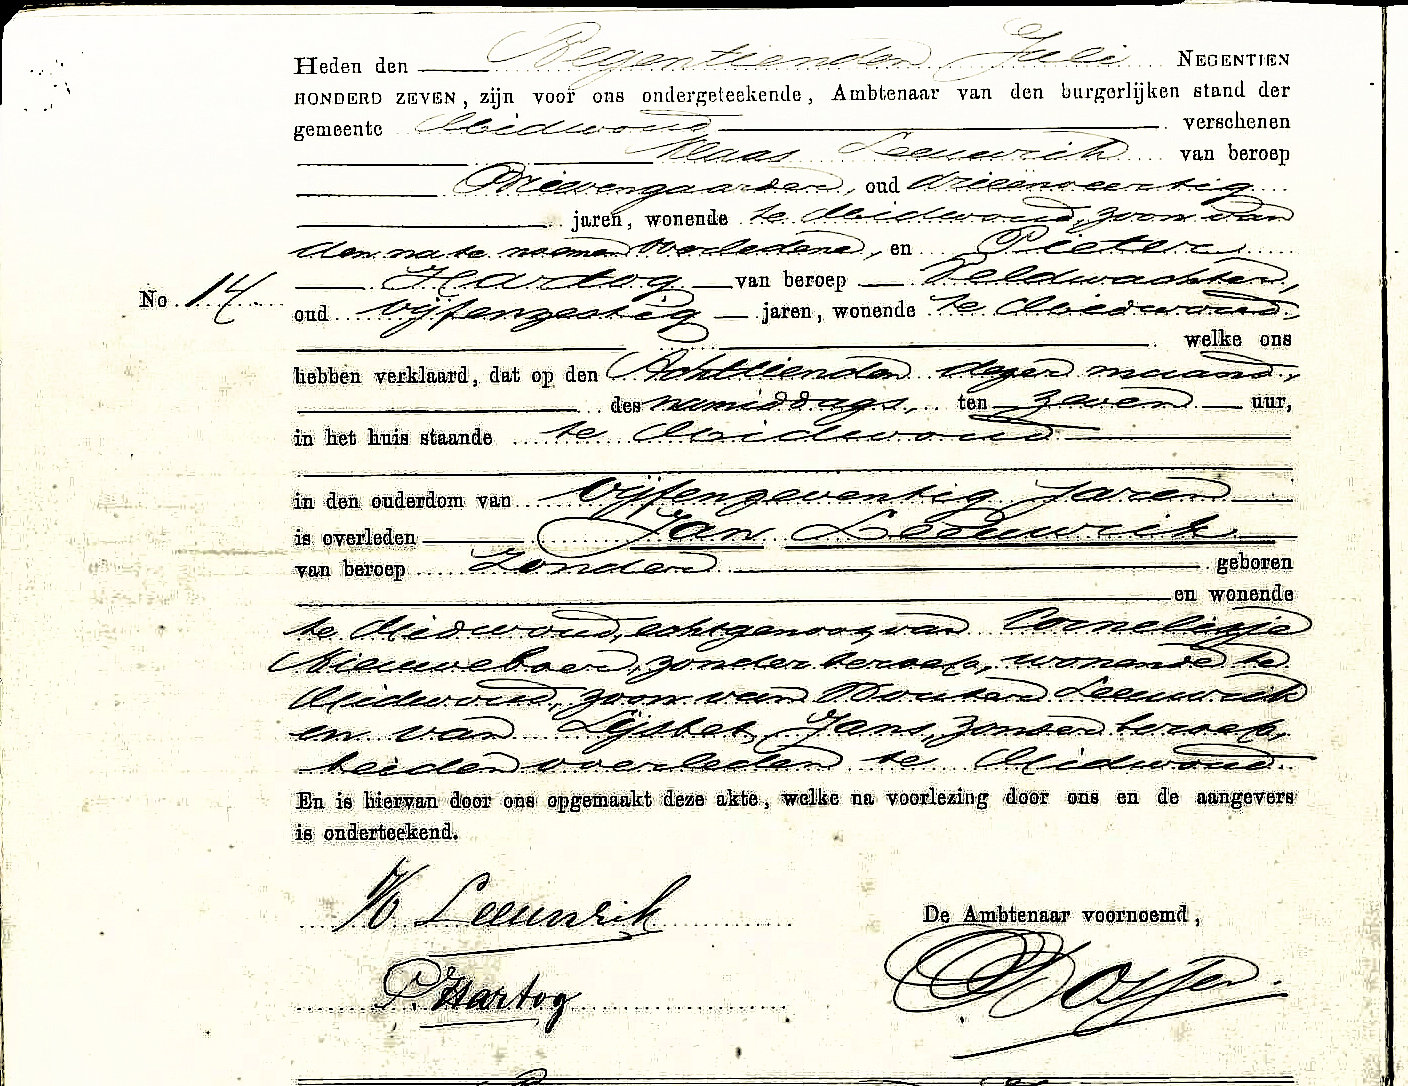 Heden den Negentienden Juli NEGENTIEN
HONDERD ZEVEN, zijn voor ons ondergeteekende, Ambtenaar van den burgerlijken stand der
gemeente Midwoud verschenen
Klaas Leeuwrik van beroep
Brievengaarder, oud drieënveertig
jaren, wonende te Midwoud, zoon van
den na te noemen overledene, en Pieter
Hartog van beroep Veldwachter,
No 14.
oud vijfenzestig jaren, wonende te Midwoud,
welke ons
hebben verklaard, dat op den Achttienden dezer maand,
des namiddags, ten zeven uur,
in het huis staande te Midwoud
in den ouderdom van vijfenzeventig jaren
is overleden Jan Leeuwrik
van beroep Zonder geboren
en wonende
te Midwoud, echtgenoot van Cornelisje
Nieuweboer, zonder beroep, wonende te
Midwoud, zoon van Wouter Leeuwrik
en van Lijsbet Jans, zonder beroep,
beiden overleden te Midwoud.
En is hiervan door ons opgemaakt deze akte, welke na voorlezing door ons en de aangevers
is onderteekend.
K Leeuwrik
De Ambtenaar voornoemd,
P. Hartog